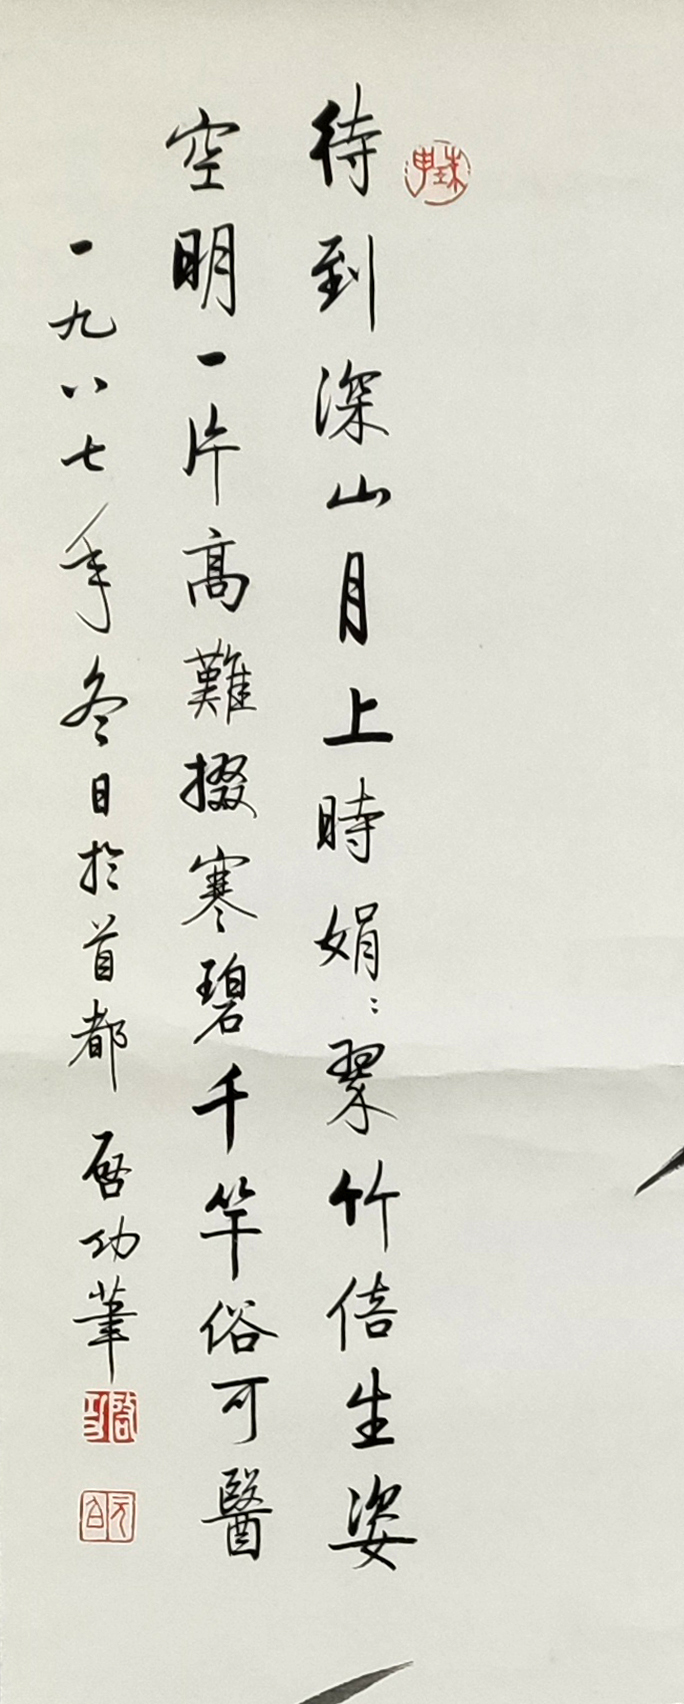 待到深山月上時娟〻翠竹倍生姿
空明一片高難掇寒碧千竿俗可醫
一九八七年冬日於首都 啓功筆
啟功
元白